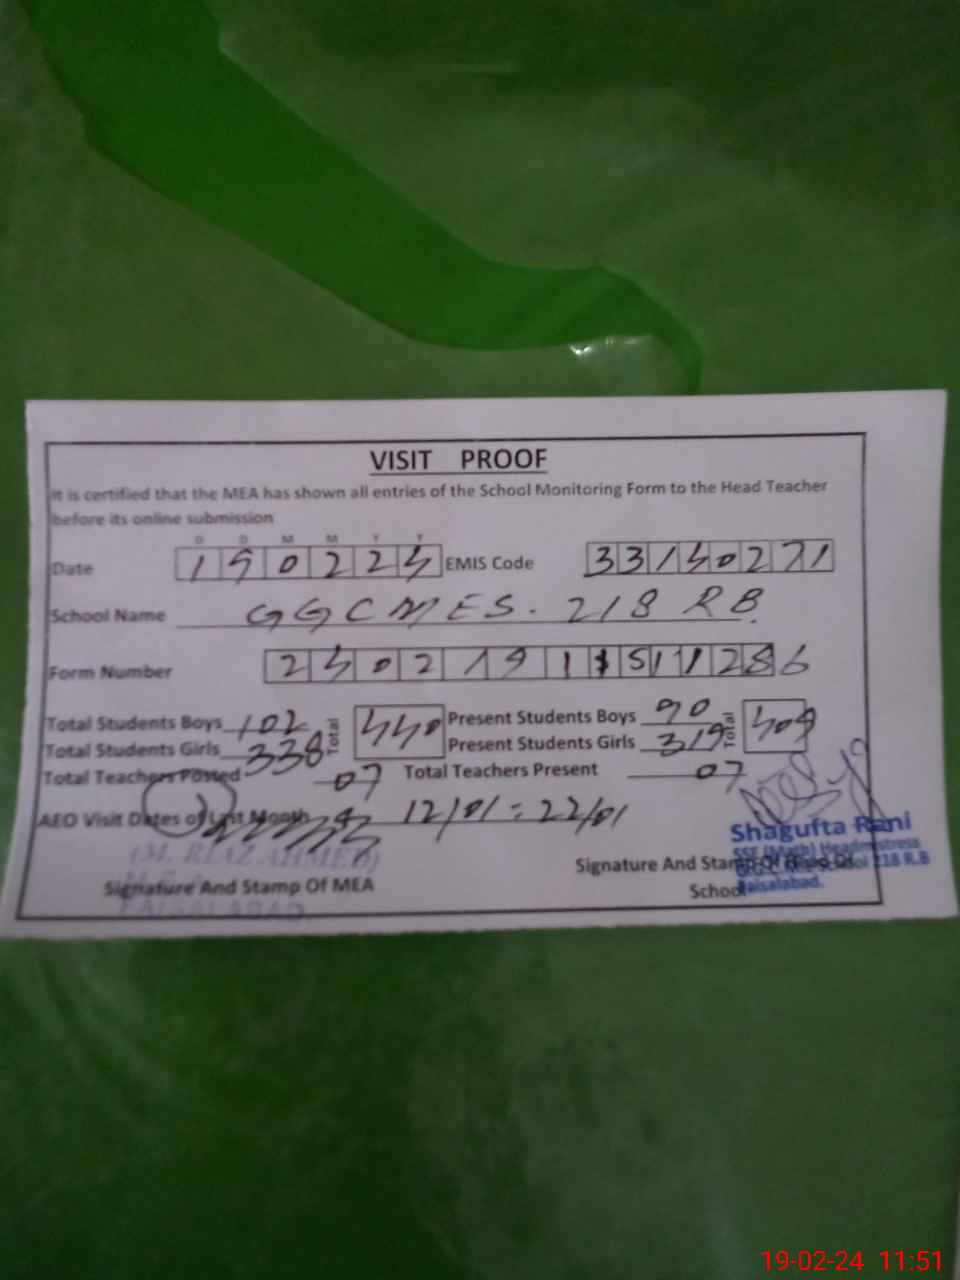 VISIT PROOF
It is certified that the MEA has shown all entries of the School Monitoring Form to the Head Teacher
before its online submission
D D M M Y Y
Date 190224 EMIS Code 33140271
School Name GGCMES. 218 RB.
Form Number
Total Students Boys 102 Total 440 Present Students Boys 90 Total 409
Total Students Girls 338 Present Students Girls 319
Total Teachers Posted 07 Total Teachers Present 07
AEO Visit Dates of Last Month 12/01 = 22/01
(M. RIAZ AHMED)
Signature And Stamp Of MEA
FAISALABAD.
Shagufta Rani
SSE (Math) Headmistress
School 218 R.B
Faisalabad.
Signature And Stamp Of Head Of
School
19-02-24 11:51